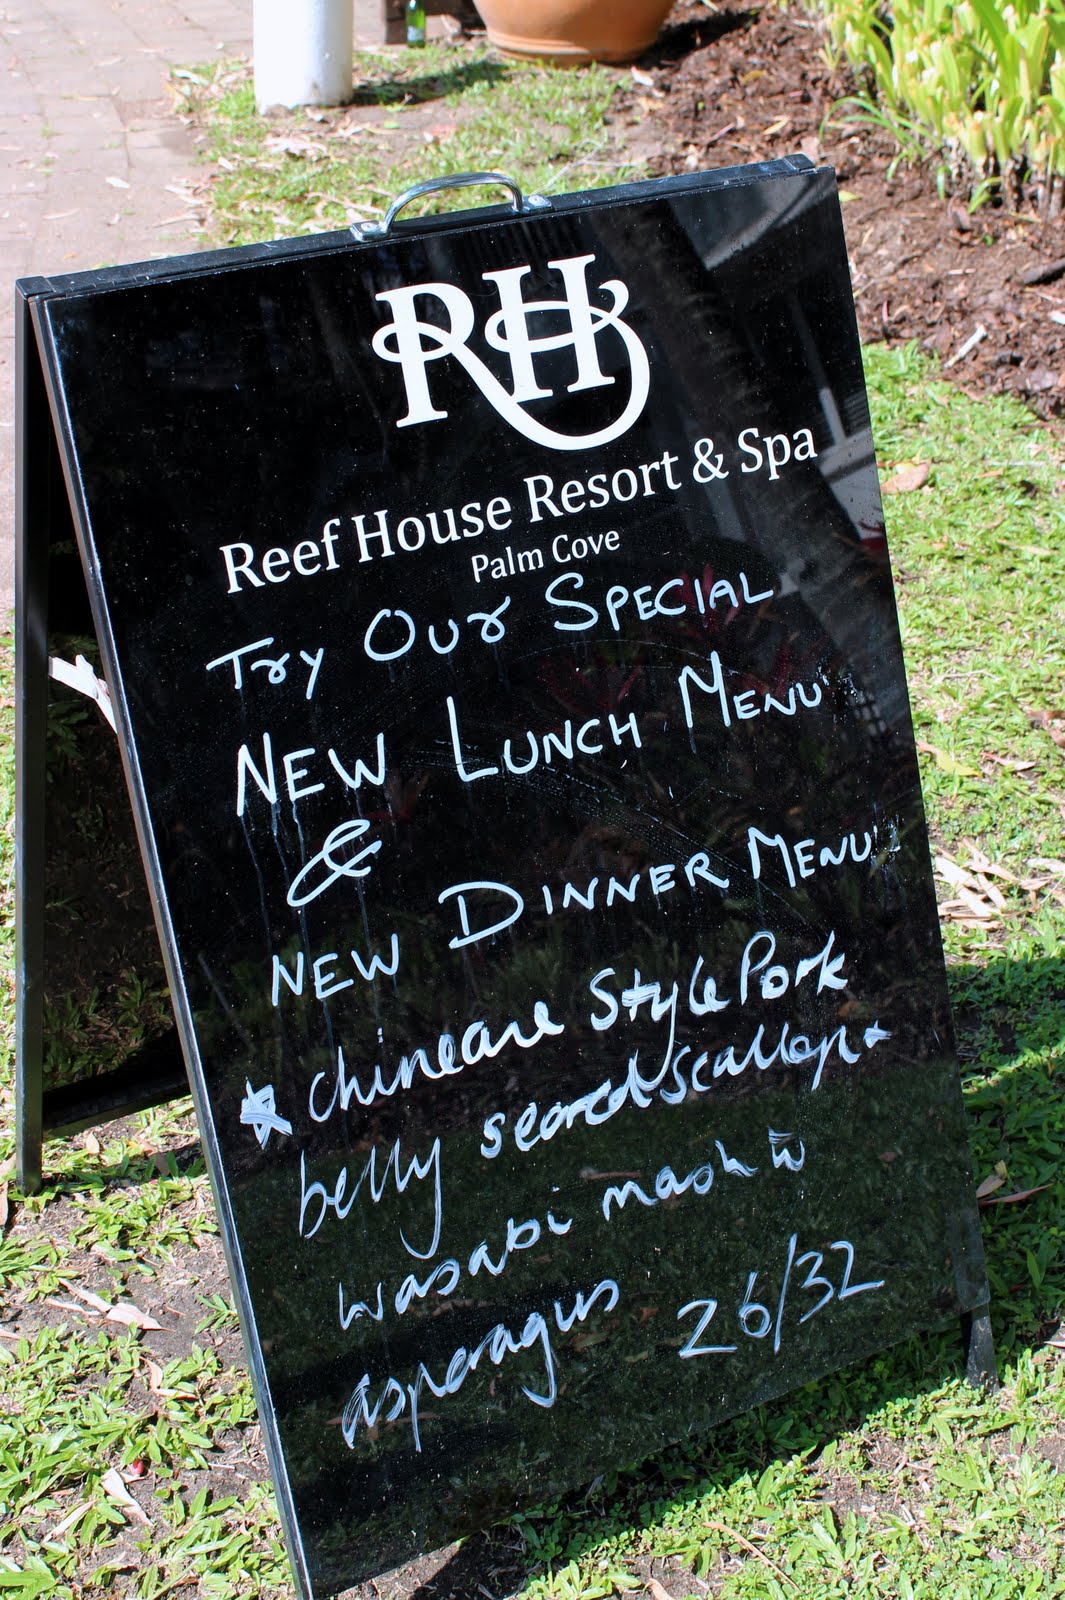 RH
Reef House Resort & Spa
Palm Cove
Try Our Special
New Lunch Menu
&
New Dinner Menu
chineare Style Pork
belly seared scallop
wasabi mash w
asperagus 26/32